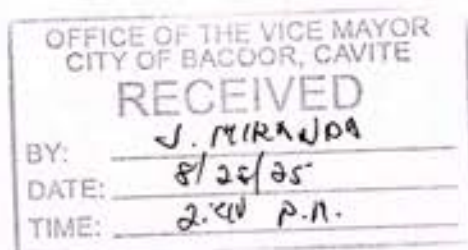 OFFICE OF THE VICE MAYOR
CITY OF BACOOR, CAVITE
RECEIVED
BY: J. MIRANDA
DATE: 8/28/25
TIME: P.M.